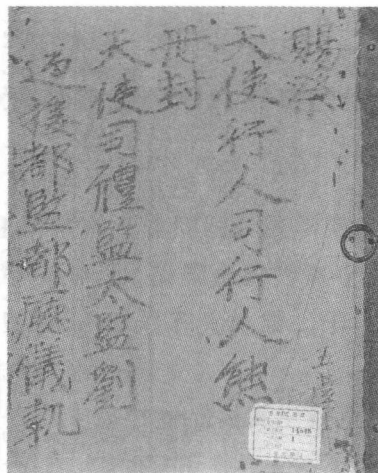 賜祭
天使行人司行人熊
冊封
天使司禮監太監劉
迎接都監都廳儀軌
五臺